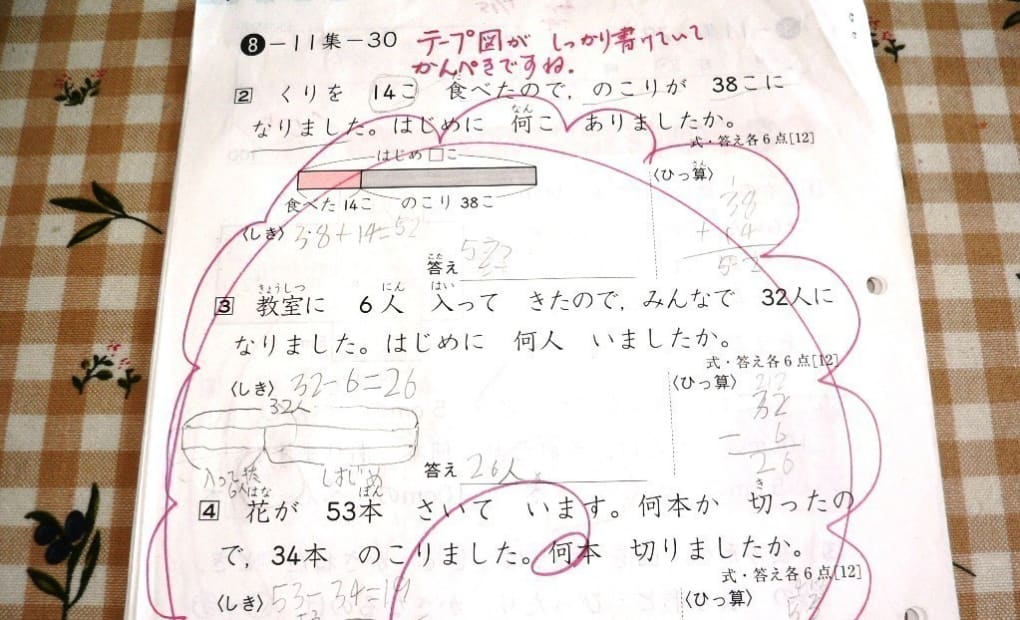 ❽-11集-30 テープ図が しっかり書けていて
かんぺきですね.
2 くりを 14こ 食べたので, のこりが 38こに
なりました。はじめに 何こ ありましたか。
なん
式・答え各6点[12]
はじめ□こ
食べた 14こ のこり 38こ
〈ひっ算〉
さん
1
38
+ 14
52
〈しき〉 38+14=52
答え
こた
きょうしつ にん はい
3 教室に 6人 入って きたので, みんなで 32人に
なりました。はじめに 何人 いましたか。
式・答え各6点[12]
〈しき〉 32-6=26
〈ひっ算〉
32
- 6
26
32人
入って来た はじめ
6人
答え 26人
はな ぽん き
4 花が 53本 さいて います。何本か 切ったの
で, 34本 のこりました。何本 切りましたか。
式・答え各6点[12]
〈しき〉 53-34=19
〈ひっ算〉
53